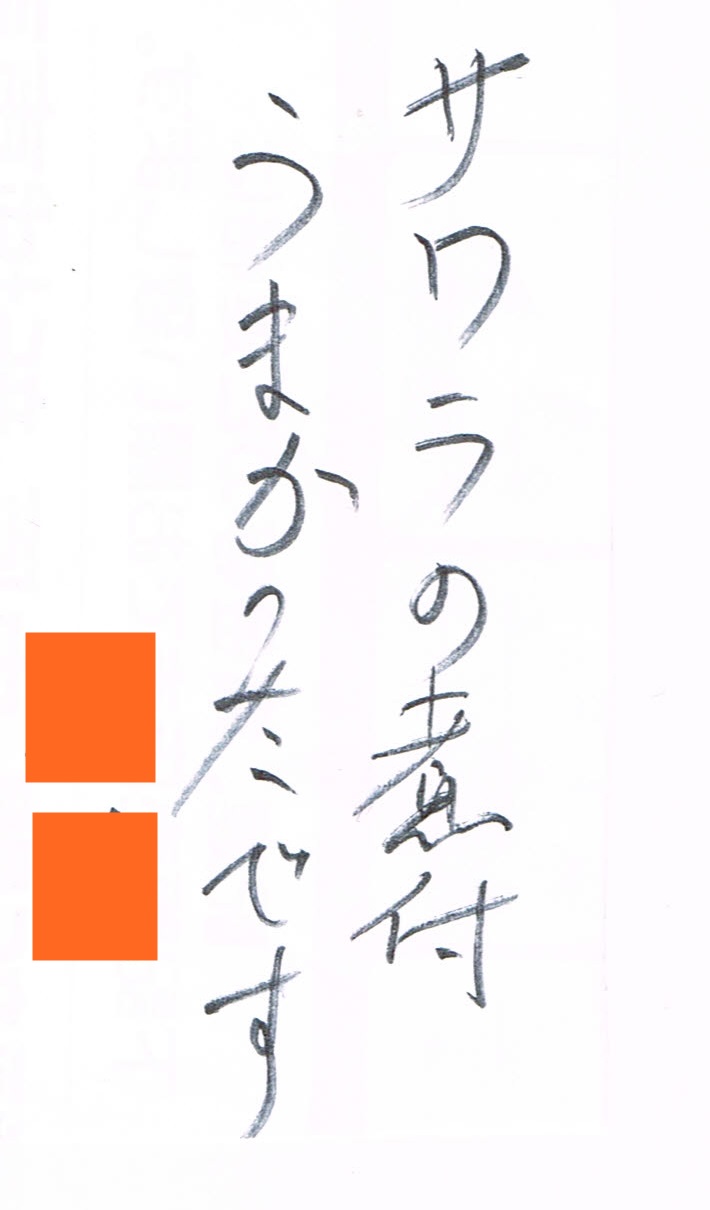 サワラの煮付
うまかったです